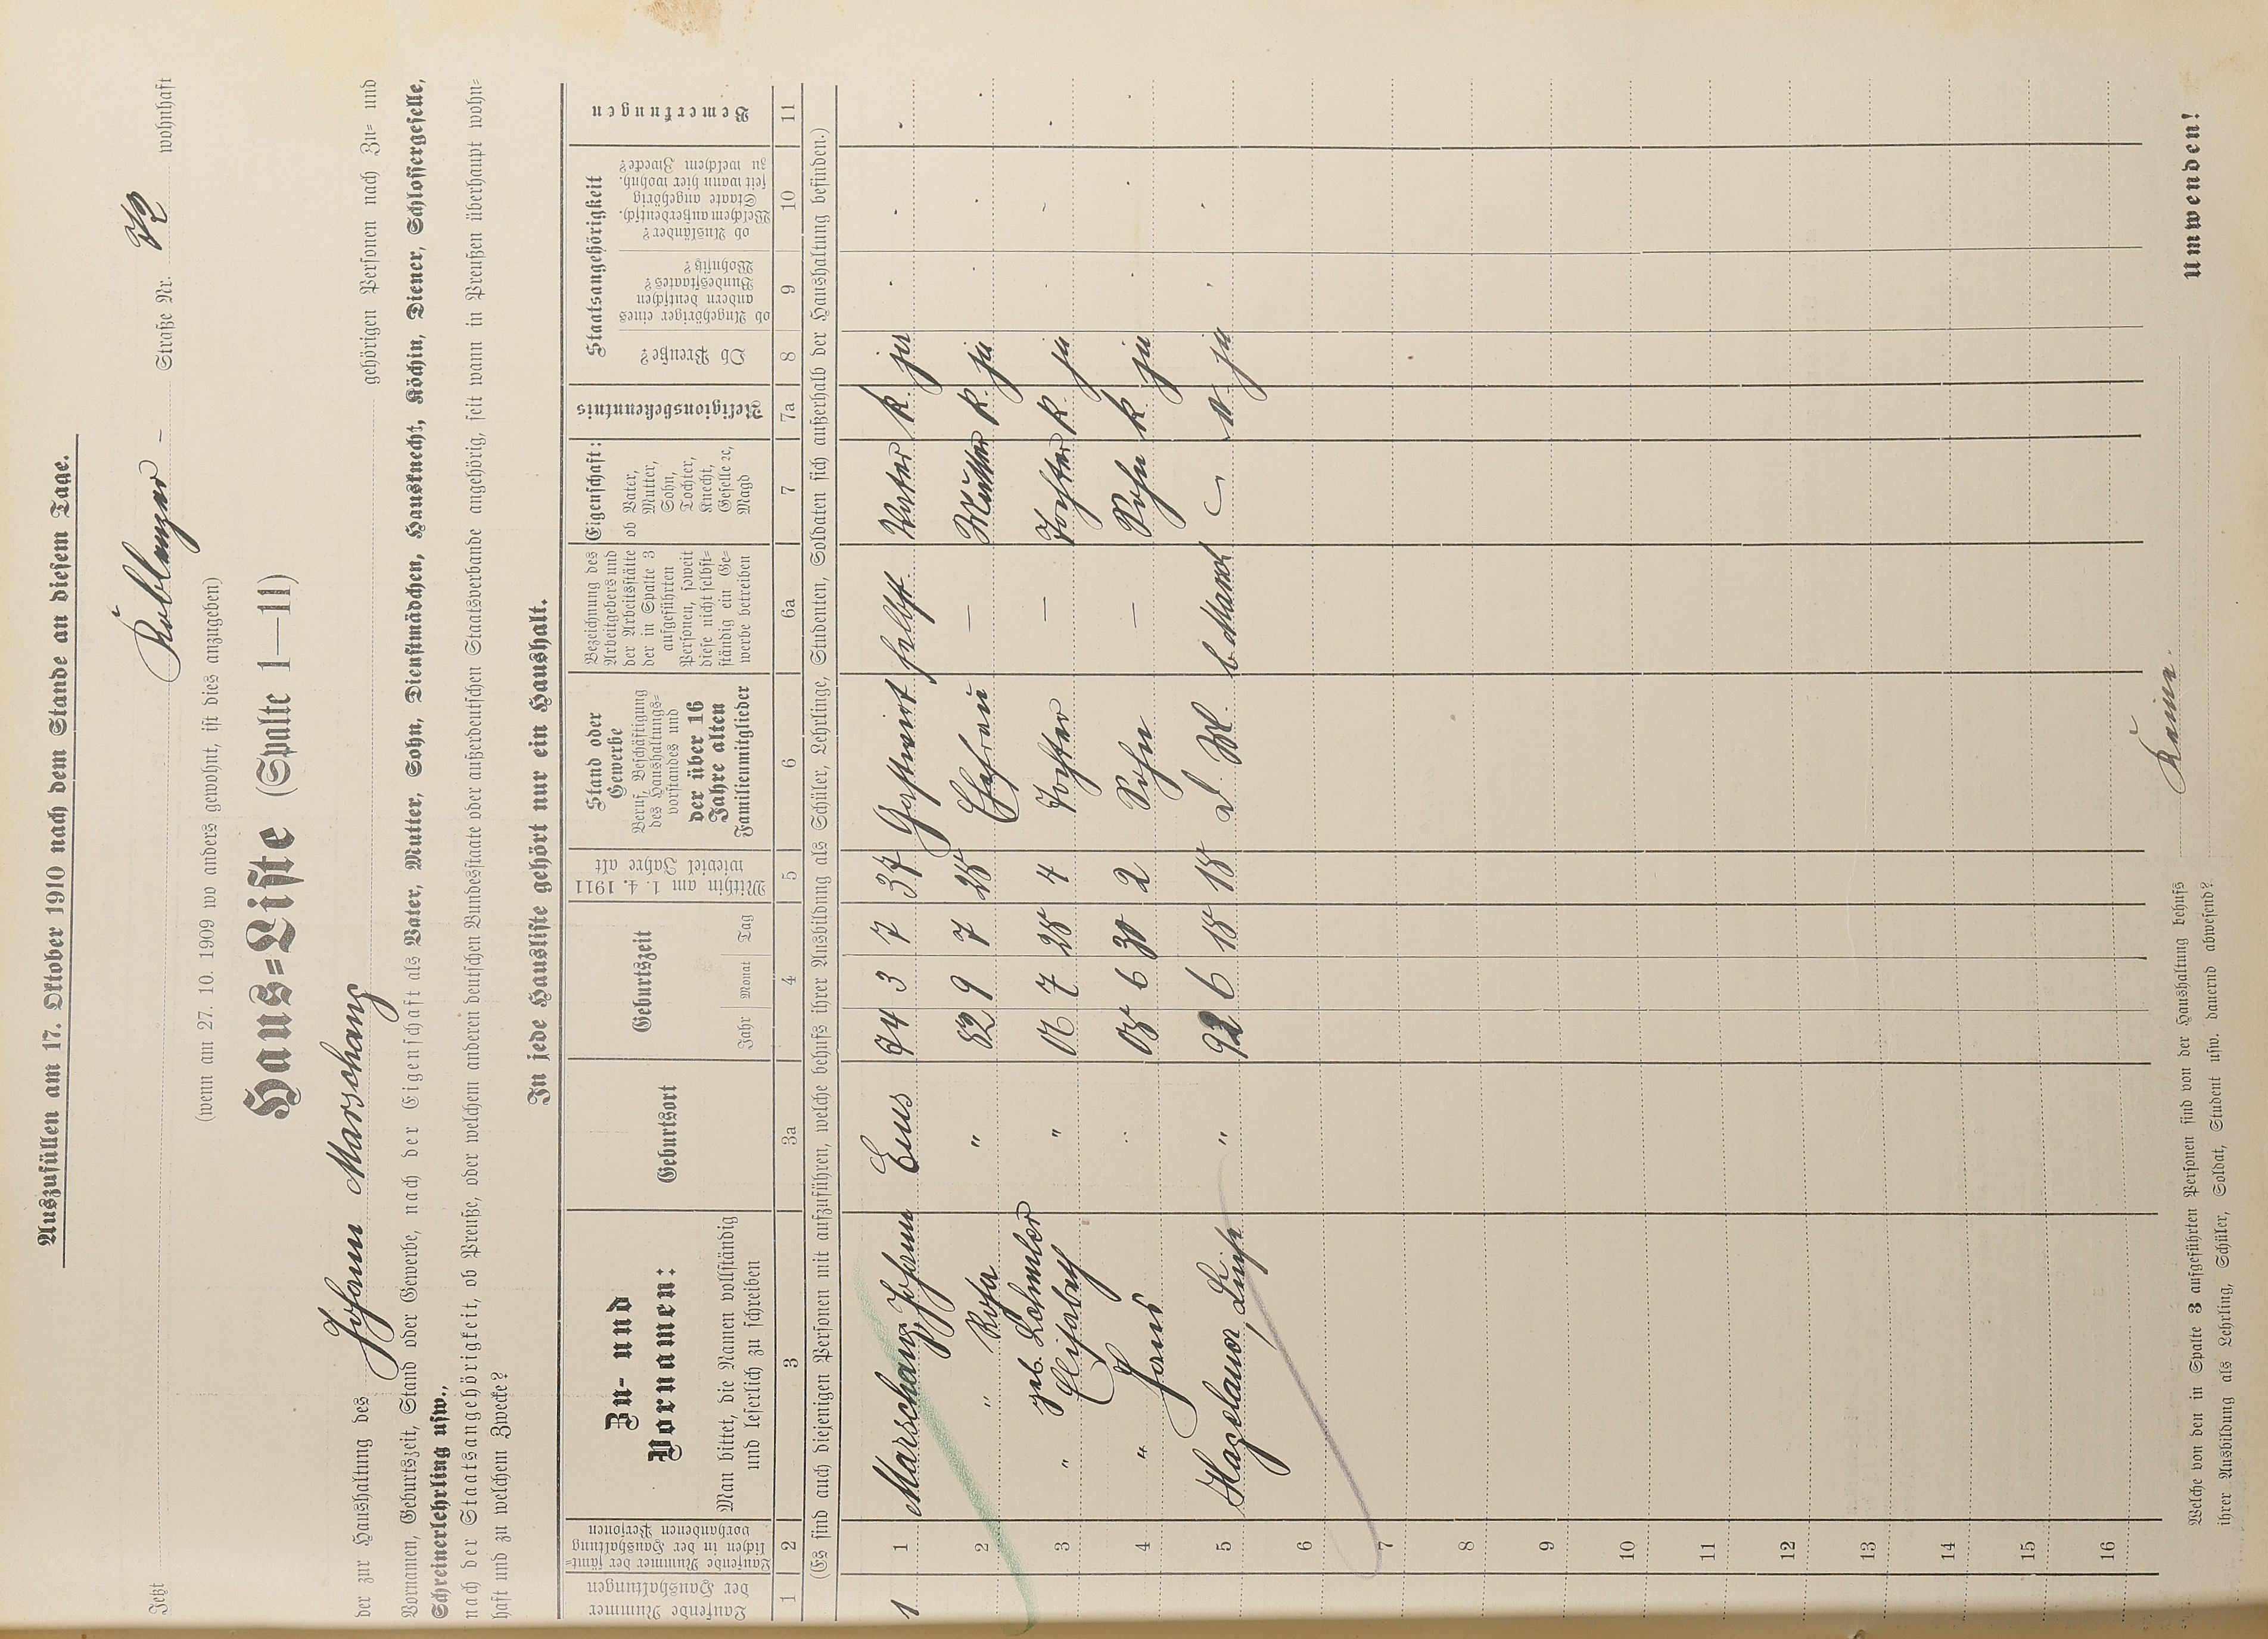 Auszufüllen am 17. Oktober 1910 nach dem Stande an diesem Tage.
Jetzt Koblenzer - Straße Nr. 72 wohnhaft
(wenn am 27. 10. 1909 wo anders gewohnt, ist dies anzugeben)
Haus=Liste (Spalte 1—11)
der zur Haushaltung des Johann Marschang gehörigen Personen nach Zu= und
Vornamen, Geburtszeit, Stand oder Gewerbe, nach der Eigenschaft als Vater, Mutter, Sohn, Dienstmädchen, Hausknecht, Köchin, Diener, Schlossergeselle,
Schreinerlehrling usw.,
nach der Staatsangehörigkeit, ob Preuße, oder welchem anderen deutschen Bundesstaate oder außerdeutschen Staatsverbande angehörig, seit wann in Preußen überhaupt wohn=
haft und zu welchem Zwecke?
In jede Hausliste gehört nur ein Haushalt.
Laufende Nummer der Haushaltungen
Laufende Nummer der sämt=lichen in der Haushaltung vorhandenen Personen
Zu- und Vornamen:
Man bittet, die Namen vollständig und leserlich zu schreiben
Geburtsort
Geburtszeit
Jahr Monat Tag
Mithin am 1. 4. 1911 wieviel Jahre alt
Stand oder Gewerbe
Beruf, Beschäftigung des Haushaltungs=vorstandes und der über 16 Jahre alten Familienmitglieder
Bezeichnung des Arbeitgebers und der Arbeitsstätte der in Spalte 3 aufgeführten Personen, soweit diese nicht selbst=ständig ein Ge=werbe betreiben
Eigenschaft:
ob Vater, Mutter, Sohn, Tochter, Knecht, Geselle 2c, Magd
Religionsbekenntnis
Staatsangehörigkeit
Ob Preuße?
ob Angehöriger eines andern deutschen Bundesstaates? Wohnsitz?
ob Ausländer? Welchem außerdeutsch. Staate angehörig seit wann hier wohnh. zu welchem Zwecke?
Bemerkungen
1 2 3 3a 4 5 6 6a 7 7a 8 9 10 11
(Es sind auch diejenigen Personen mit aufzuführen, welche behufs ihrer Ausbildung als Schüler, Lehrlinge, Studenten, Soldaten sich außerhalb der Haushaltung befinden.)
1 1 Marschang, Johann Ems 74 3 7 37 Gastwirt selbst Vater k. ja
2 " Rosa " 82 9 7 28 Ehefrau — Mutter k. ja
geb.
3 " Elisabeth " 06 7 28 4 Tochter — Tochter k. ja
4 " Hans " 08 6 30 2 Sohn — Sohn k. ja
5 Hagelauer, Luise " 92 6 18 18 ja
6
7
8
9
10
11
12
13
14
15
16
Welche von den in Spalte 3 aufgeführten Personen sind von der Haushaltung behufs
ihrer Ausbildung als Lehrling, Schüler, Soldat, Student usw. dauernd abwesend?
Keine.
Umwenden!